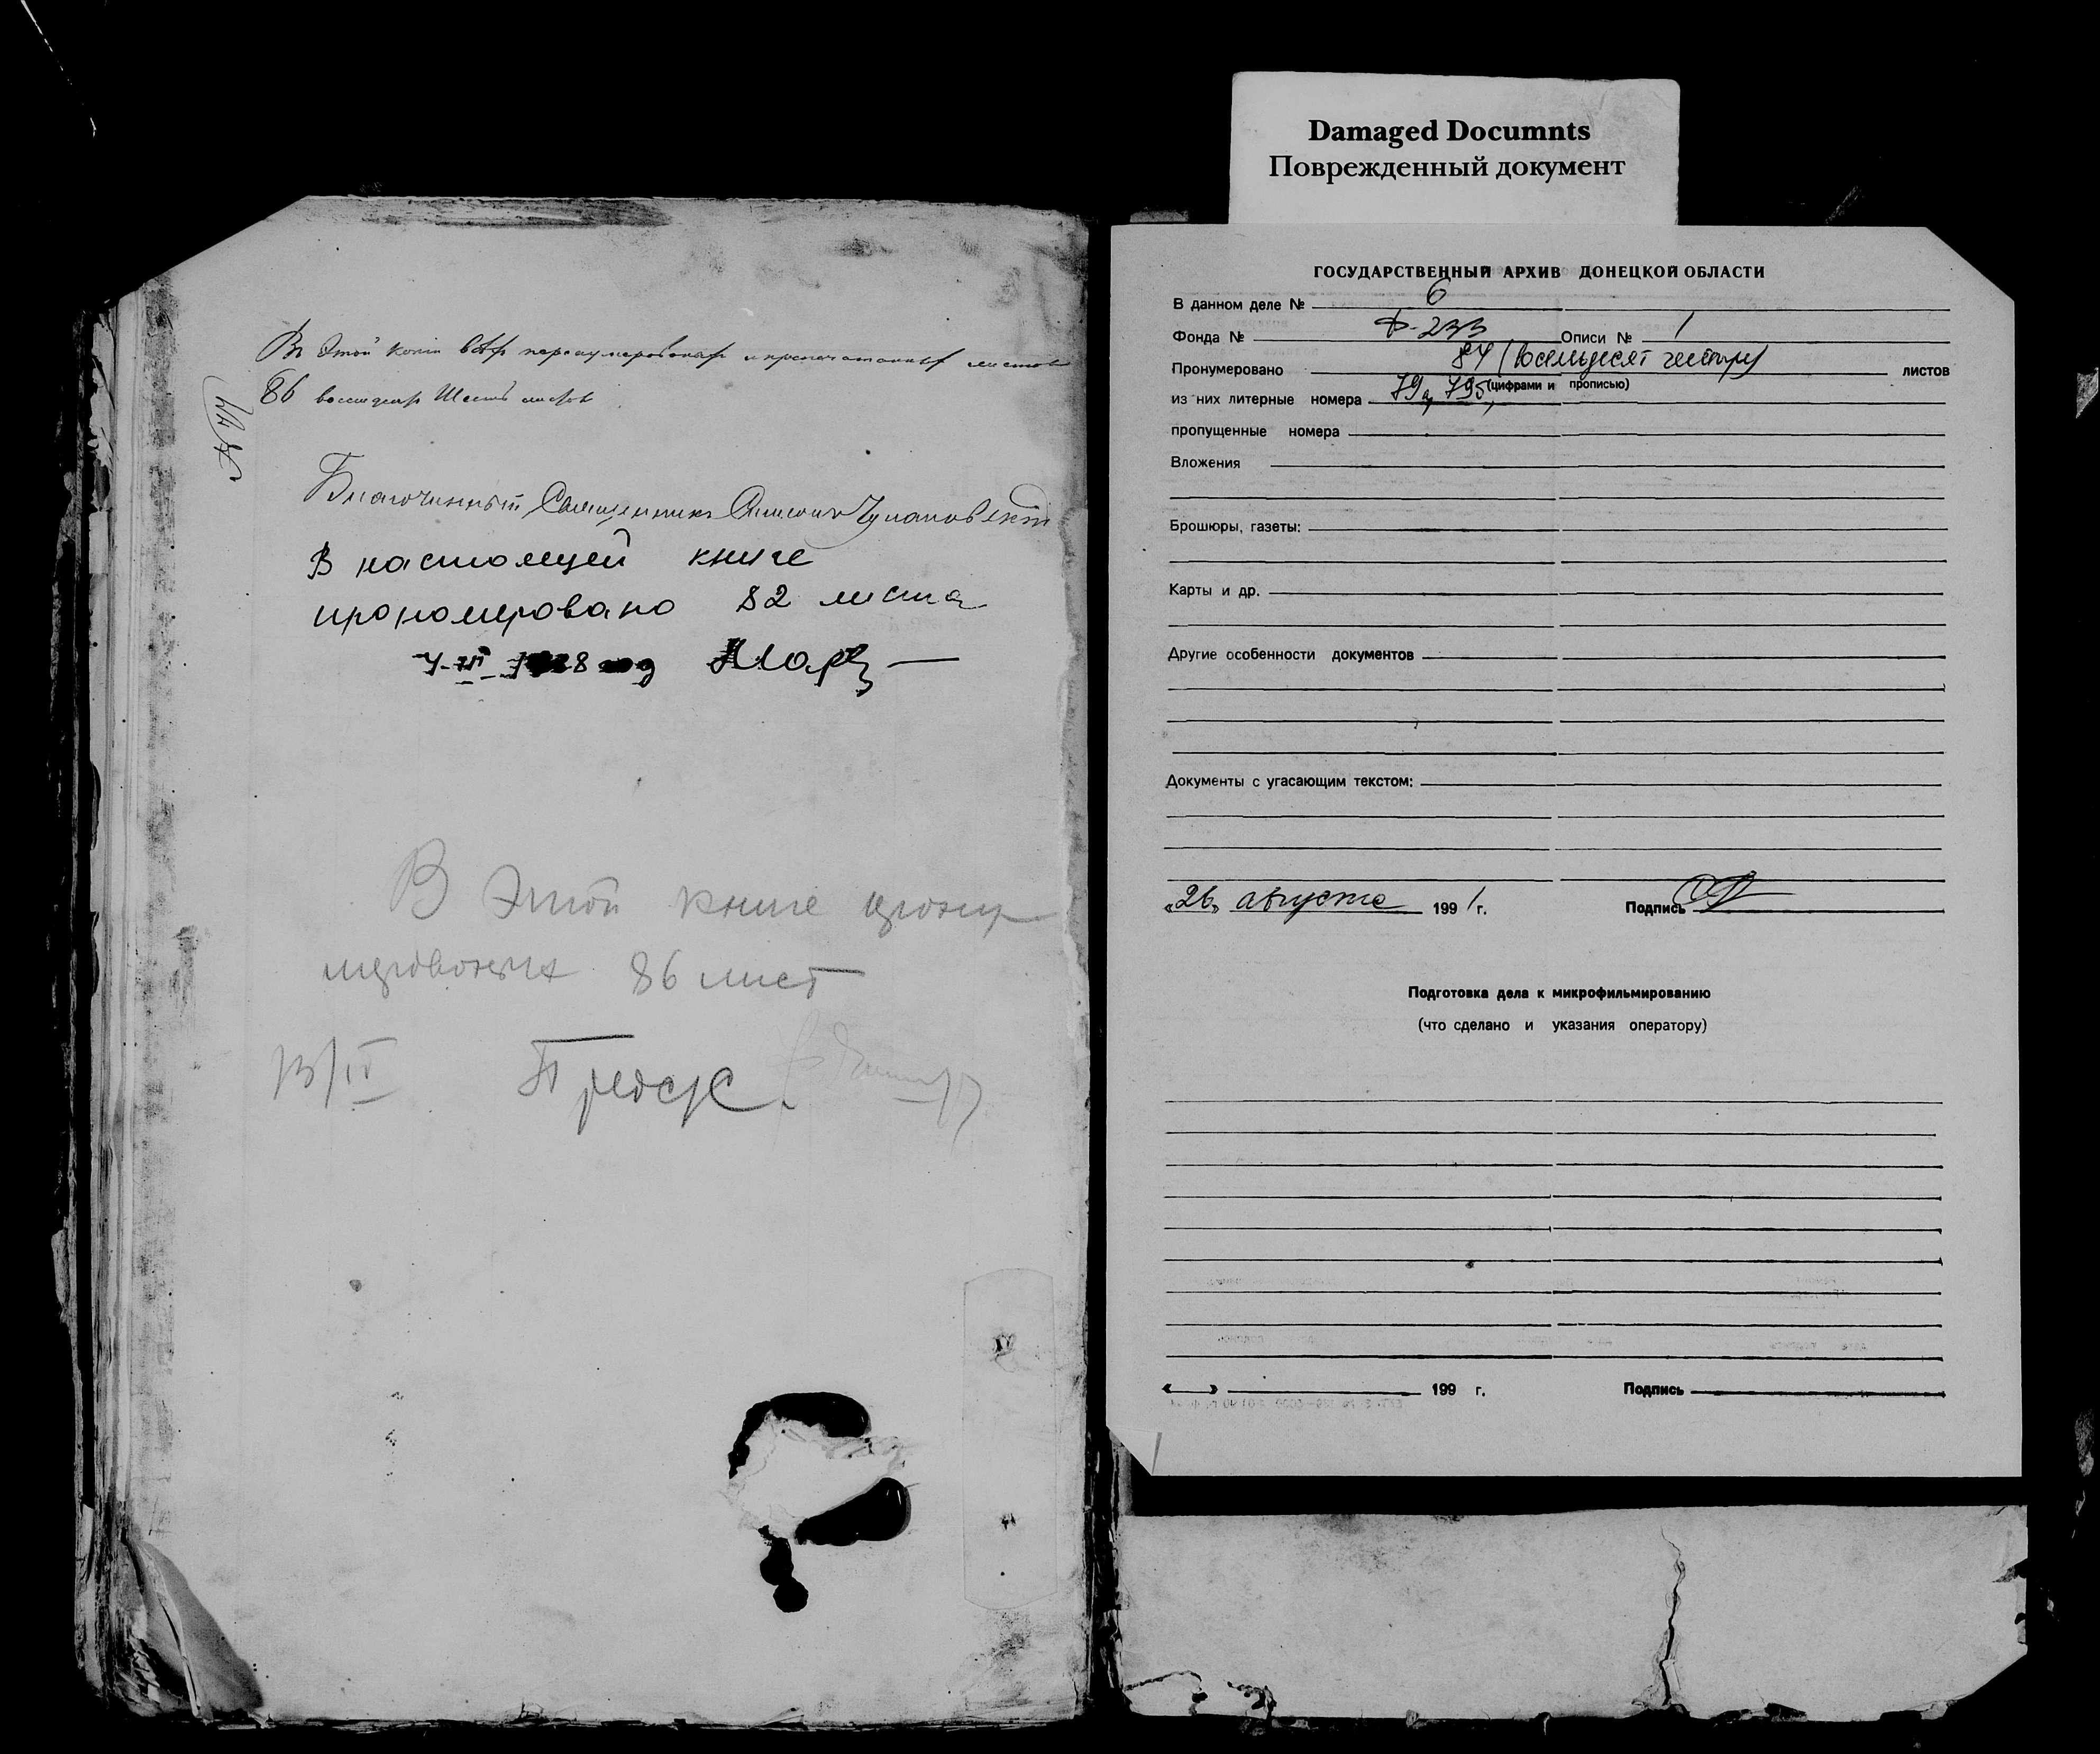 Въ этой копіи всѣхъ перенумерованныхъ и припечатанныхъ листовъ
86 восемдесятъ Шесть листовъ
Благочинный Священникъ
В настоящей книге
прономеровано 82 листа
86 лист
В этой книге прону
Предсс.
Damaged Documnts
Поврежденный документ
ГОСУДАРСТВЕННЫЙ АРХИВ ДОНЕЦКОЙ ОБЛАСТИ
В данном деле № 6
Фонда № Ф-233 Описи № 1
Пронумеровано 84 (восемьдесят четыре) листов
(цифрами и прописью)
из них литерные номера 79а, 79б,
пропущенные номера
Вложения
Брошюры, газеты:
Карты и др.
Другие особенности документов
Документы с угасающим текстом:
«26» августа 1991 г. Подпись
Подготовка дела к микрофильмированию
(что сделано и указания оператору)
« » 199 г. Подпись